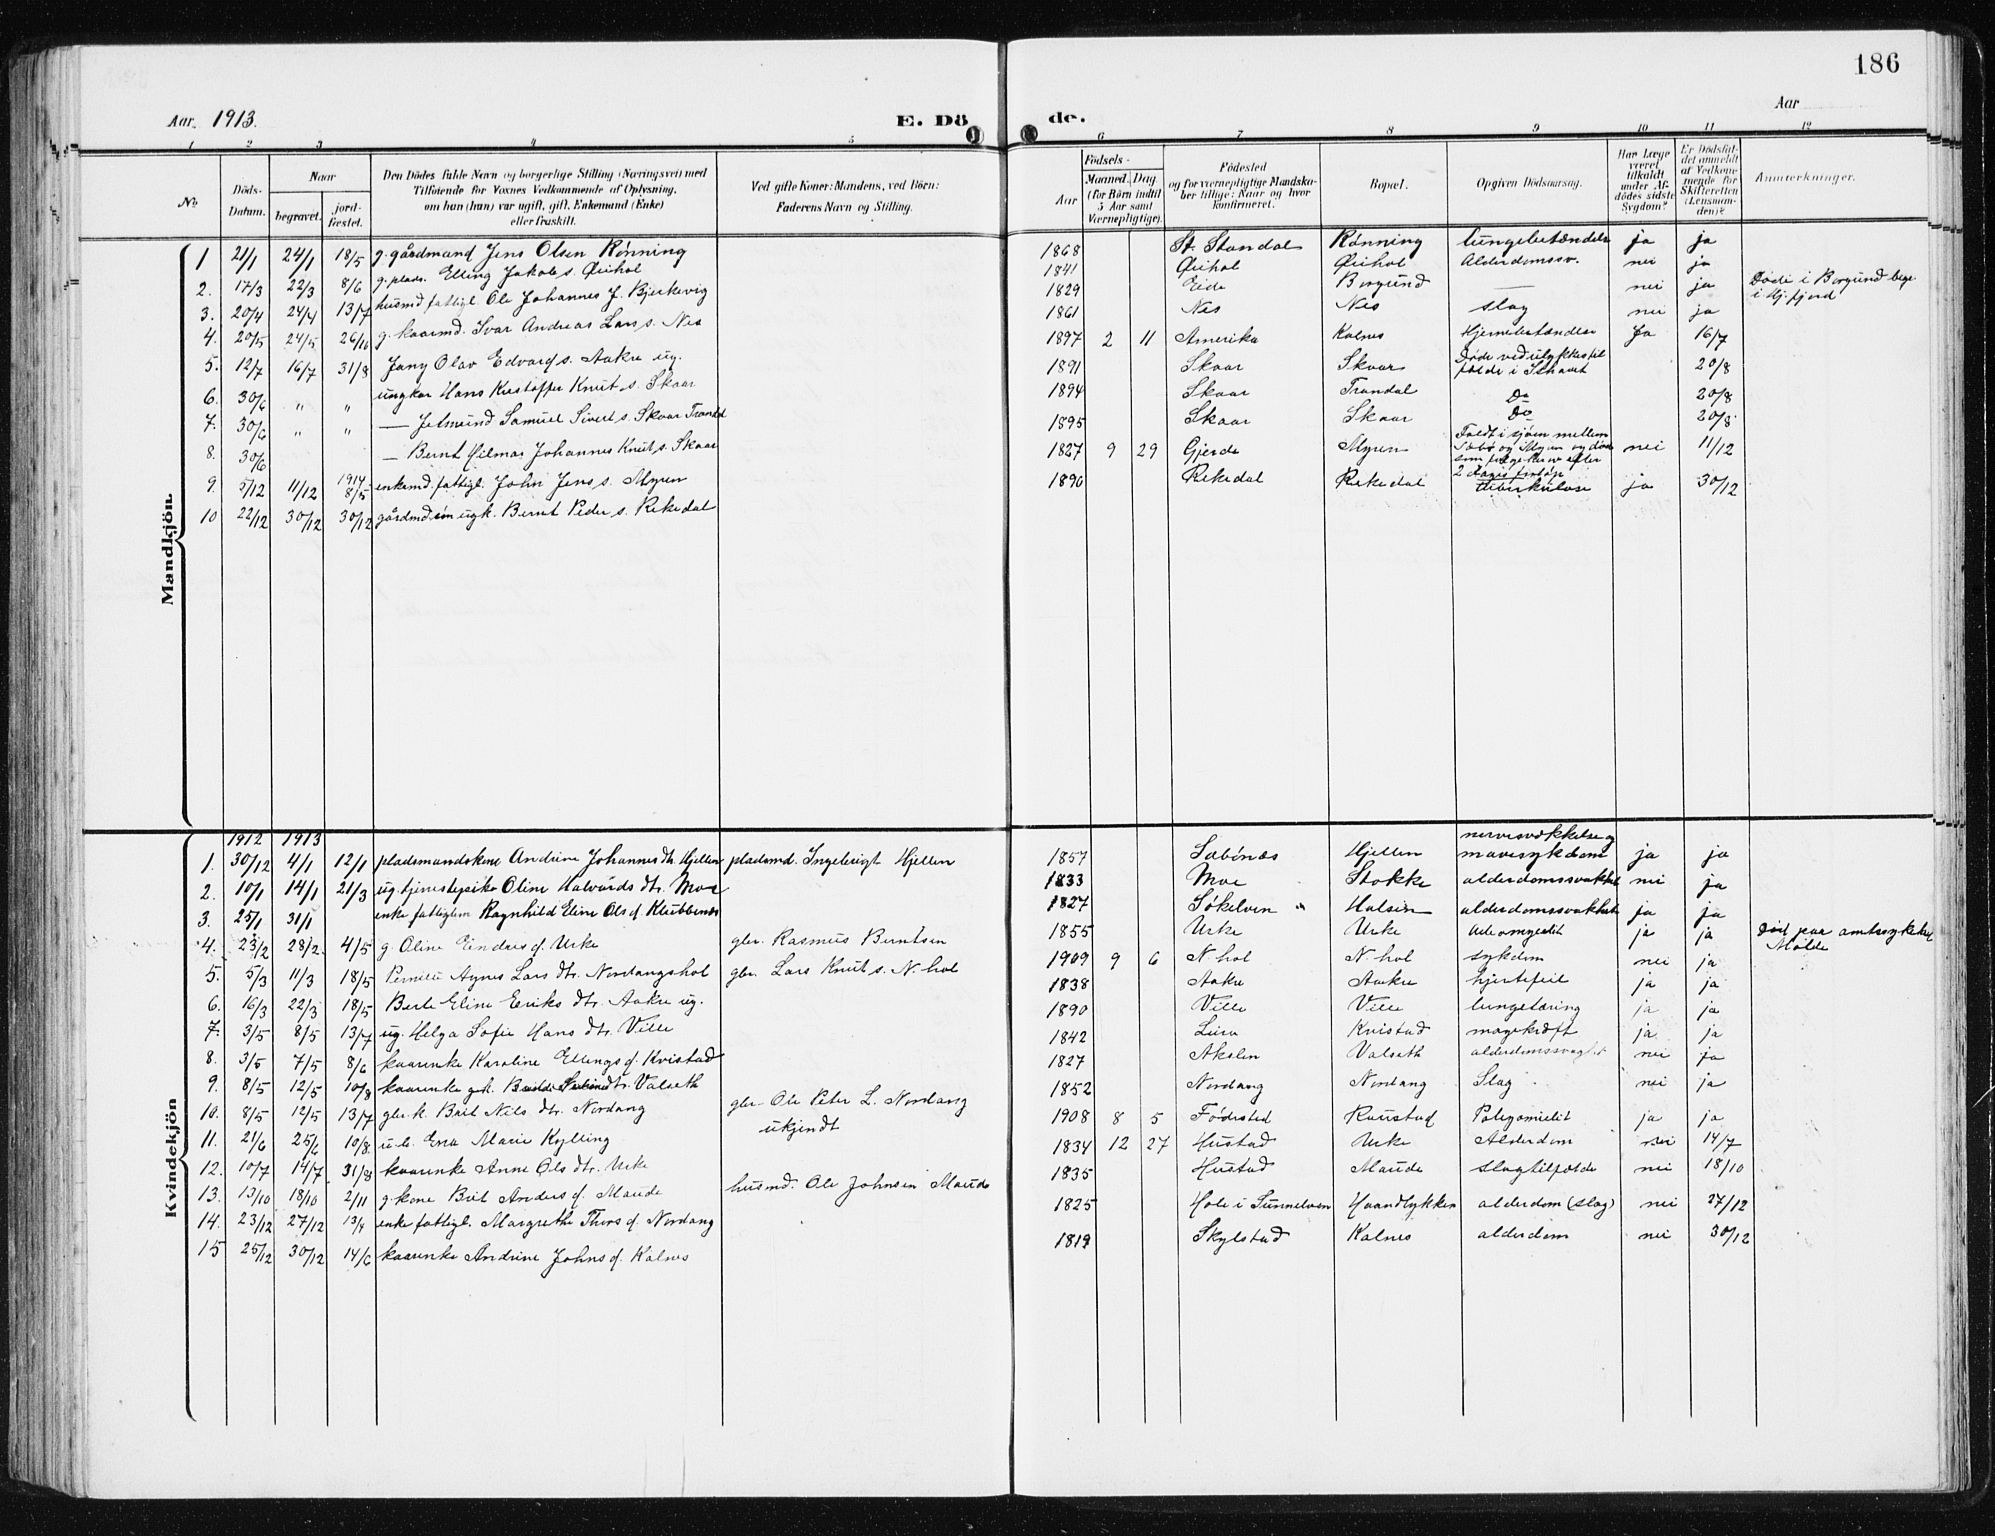 186
Aar. 1913.
E. Dö
de.
Aar
1 2 3 4 5 6 7 8 9 10 11 12
No
Döds-
Datum.
Naar
begravet.
jord-
fæstet.
Den Dödes fulde Navn og borgerlige Stilling (Næringsvei) med
Tilföiende for Voxnes Vedkommende af Oplysning,
om han (hun) var ugift, gift, Enkemand (Enke)
eller fraskilt.
Ved gifte Koner: Mandens, ved Börn:
Faderens Navn og Stilling.
Födsels-
Aar
Maaned. Dag
(for Börn indtil
5 Aar samt
Værnepligtige).
Födested
og for værnepligtige Mandska-
ber tillige: Naar og hvor
konfirmeret.
Bopæl.
Opgiven Dödsaarsag.
Har Læge
været
tilkaldt
under Af-
dödes sidste
Sygdom?
Er Dödsfal-
det anmeldt
af Vedkom-
mende for
Skifteretten
(Lensman-
den)?
Anmærkninger.
Mandkjön.
1 21/1 24/1 18/5 g. gårdmand Jens Olsen Rønning 1868 St. Standal Rønning lungebetændelse ja ja
2. 17/3 22/3 8/6 g. plads. Elling Jakobs. Øiehol 1841 Øiehol Øiehol Alderdomssv. nei ja
3. 20/4 24/4 13/7 husmd fattigl. Ole Johannes J. Bjerkevig 1829 Eide Borgund — nei ja Døde i Borgund beg.
i Hj. fjord
4. 20/5 24/5 26/10 g. kaarmd. Ivar Andreas Lars s. Nes 1861 Nes Nes slag nei ja
5. 12/7 16/7 31/8 Jany Olav Edvard s. Aakre ug. 1897 2 11 Amerika Kalnes Hjernebetændelse Ja 16/7
6. 30/6 " " ungkar Hans Kristoffer Knut s. Skaar 1891 Skaar Skaar Døde ved ulykkestil
fælde i Ishavet 20/8
7. 30/6 " " — Jetmund Samuel Sivert s. Skaar Trandal 1894 Skaar Trandal Do 20/8
8. 30/6 — Bernt Hilmar Johannes Knut s. Skaar 1895 Skaar Skaar Do 20/8
9. 5/12 11/12 1914 8/5 enkemd. fattigl. John Jens s. Myren 1827 9 29 Gjerde Myren Faldt i sjøen mellem
Sæbø og Myren og døde
som følge herav efter
2 dages forløp nei 11/12
10 22/12 30/12 30/12 gårdmd søn ugk. Bernt Peder s. Rekedal 1890 Rekedal Rekedal tuberkulose ja 30/12
Kvindekjön
1912 1913
1. 30/12 4/1 12/1 pladsmandskone Andrine Johannes dtr. Hjellen pladsmd. Ingebrigt Hjellen 1857 Sæbønes Hjellen nervesvækkelse og
mavesykdom ja ja
2. 10/1 14/1 21/3 ug. tjenestepike Oline Halvards dtr. Moe 1833 Moe Stokke alderdomssvakhet nei ja
3. 25/1 31/1 enke fattiglem Ragnhild Eline Ols d. Klubbenes 1827 Søkelven " Halsen alderdomssvakhet ja ja
4. 23/2 28/2. 4/5 g. Oline Eindres d. Urke gbr. Rasmus Berntsen 1855 Urke Urke ja ja Død paa amtssykehus
Molde
5. 5/3 11/3 18/5 Pernille Agnes Lars dtr. Nordangshol gbr. Lars Knut s. N. hol 1909 9 6 N. hol N. hol sykdom nei ja
6. 16/3 22/3 18/5 Berte Eline Eriks dtr. Aakre ug. 1838 Aakre Aakre hjertefeil ja ja
7. 3/5 8/5 13/7 ug. Helga Sofie Hans dtr. Ville 1890 Ville Ville lungetæring ja ja
8. 3/5 7/5 8/6 kaarenke Karoline Ellings d. Kvistad 1842 Kvistad mavekræft ja ja
9. 8/5 12/5 10/8 kaarenke dtr. Valseth 1827 Valseth alderdomssvaghet nei ja
10. 8/5 12/5 13/7 gbr. k. Brit Nils dtr. Nordang gbr. Ole Peter L. Nordang 1852 Nordang Nordang Slag nei ja
11. 21/6 25/6 10/8 u. b. Ena Marie Kylling ukjendt 1908 8 5 Fødested Raustad ja ja
12. 10/7 14/7 31/8 kaarenke Anne Ols dtr. Urke 1834 12 27 Hustad Urke Alderdom nei 14/7
13. 13/10 18/10 2/11 g. kone Brit Anders d. Maude husmd. Ole Johnsen Maude 1835 Hustad Maude slagtilfælde nei 18/10
14. 23/12 27/12 13/4 enke fattigl. Margrethe Thors d. Nordang 1825 Hole i Sunnelven Haandlykken alderdom (slag) nei 27/12
15 25/12 30/12 14/6 kaarenke Andrine Johns d. Kalnes 1819 Skylstad Kalnes alderdom nei 30/12